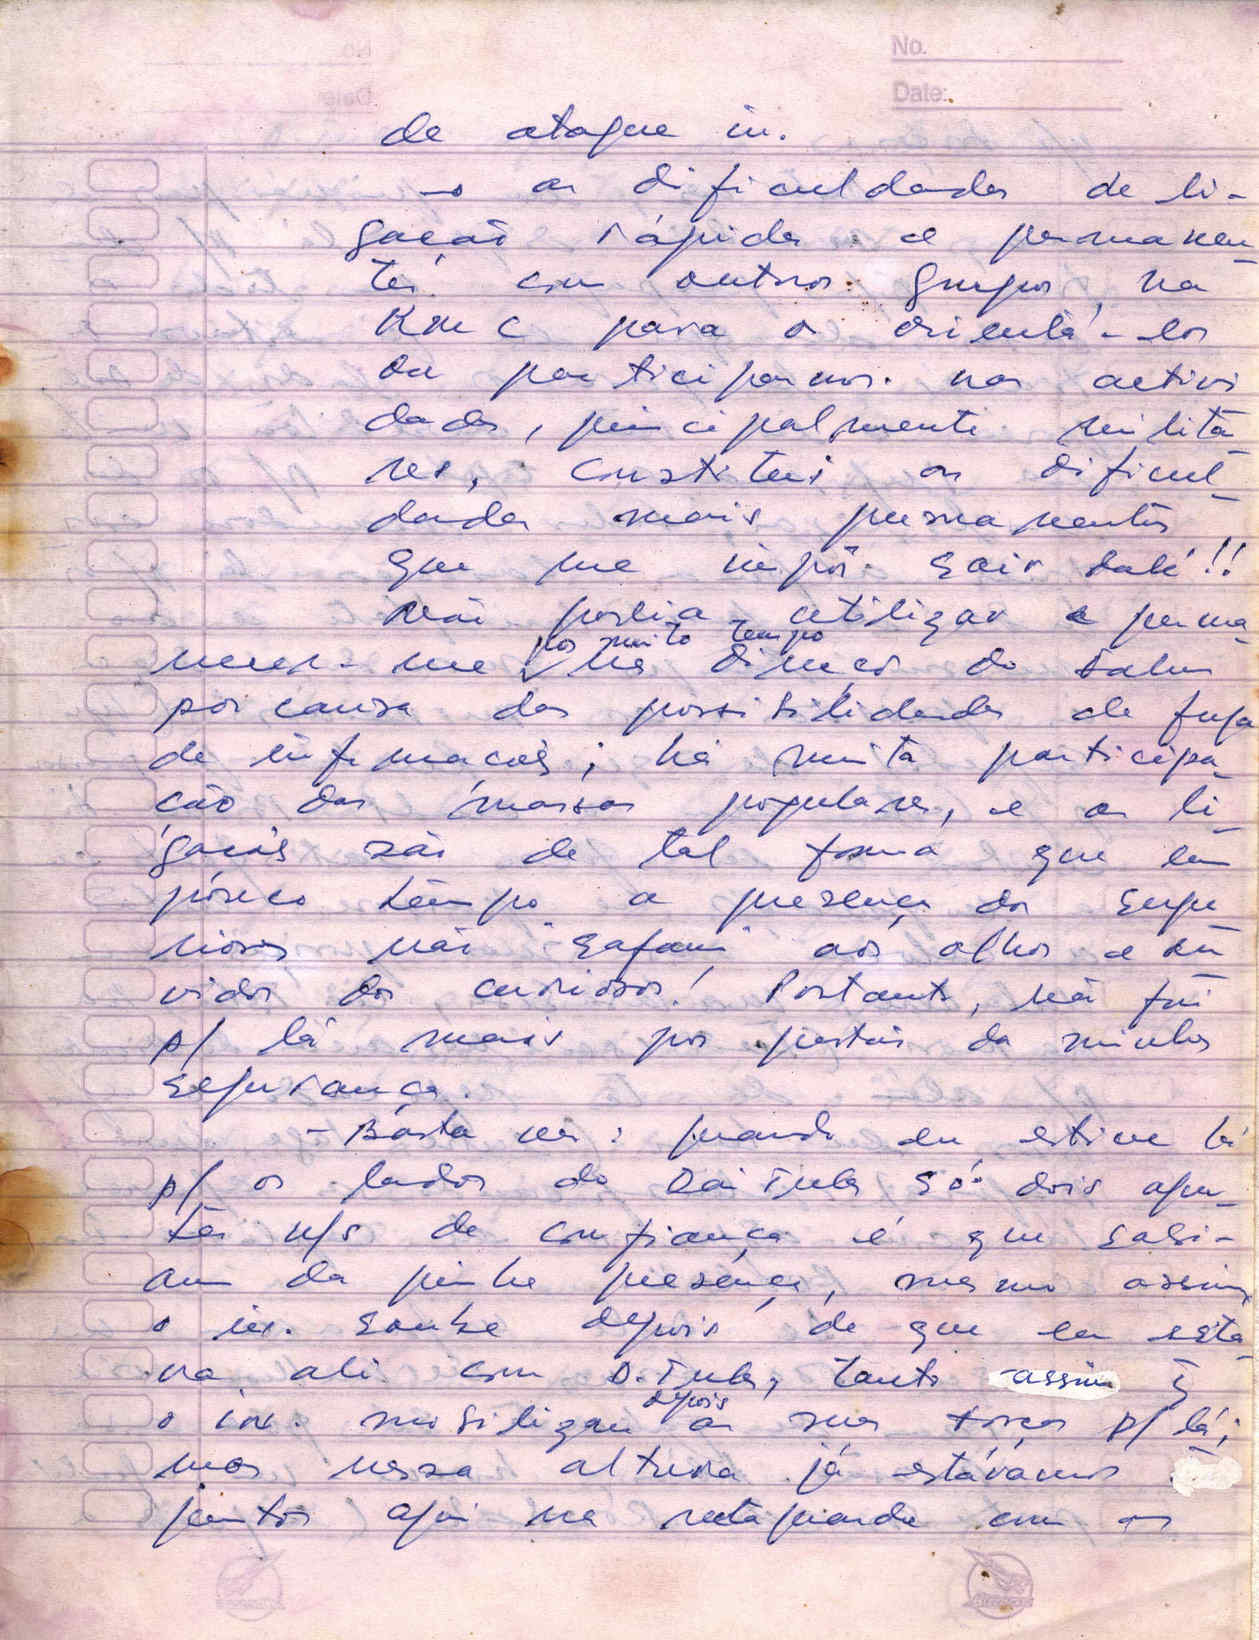 No.
Date:
de ataque in.
→ as dificuldades de li-
gação rápida e permanen-
tes com outros grupos, na
para a orientá-los
ou participarmos nas activi
dades, principalmente milita
res, constitui as dificul-
dades mais permanentes
que me impôs sair dali!!
Não podia utilizar e perma-
necer-me na direcção do
por muito tempo
por causa das possibilidades de fuga
de informações; há muita participa-
ção das massas populares, e as li-
gações são de tal forma que em
pouco tempo a presença dos supe
riores não "safam" aos olhos e ou
vidos dos curiosos! Portanto, não fui
p/ lá mais por questões da minha
segurança.
- Basta ver: quando eu estive lá
p/ os lados do Dai Tula só dois agen-
tes n/s de confiança é que sabi-
am da minha presença, mesmo assim
o in. soube depois de que eu esta
va ali com D. Tula, tanto assim q̄
depois
o in. mobilizou as suas forças p/ lá;
mas nessa altura já estávamos
juntos aqui na rectaguarda com os